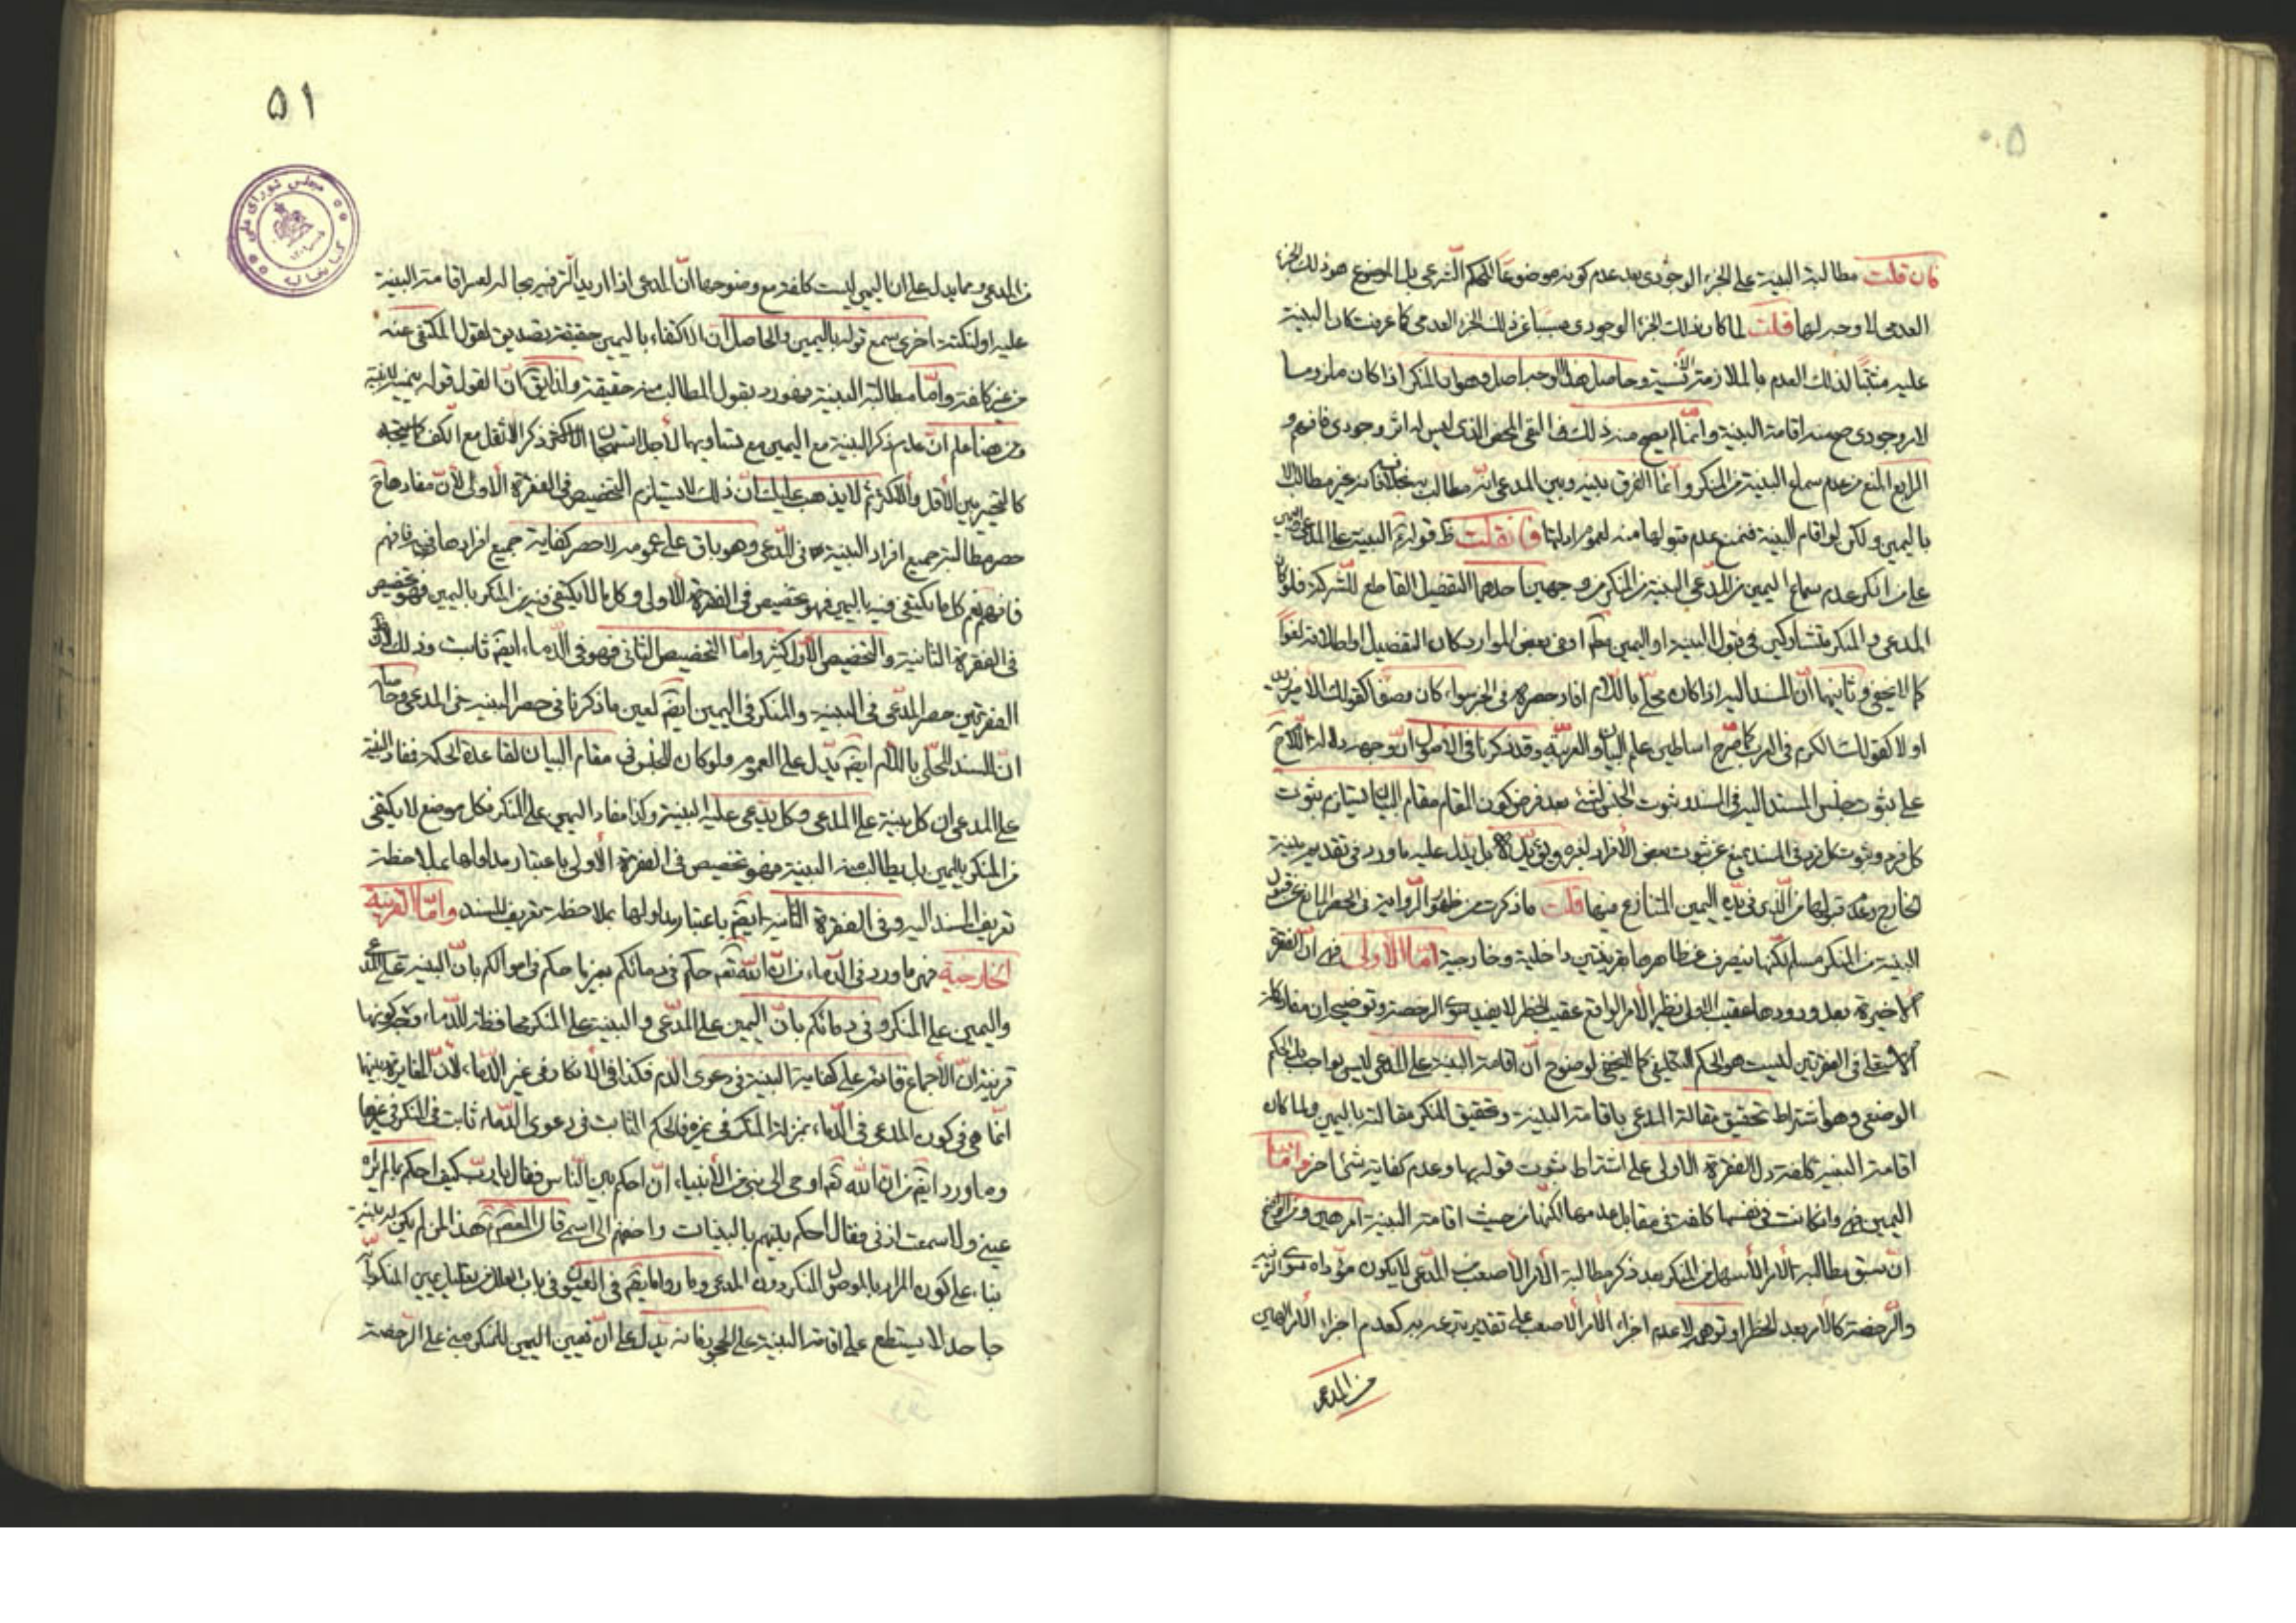 ۵۰
فان قلت مطالبة البينة على الجزء الوجودى بعد عدم كونه موضوعا للحكم الشرعى بل الموضوع هو ذلك الجزء
العدمى لا وجه لها قلت لما كان ذلك الجزء الوجودى مسببا عن ذلك الجزء العدمى كما عرفت كان البينة
عليه مثبتا لذلك العدم بالملازمة وحاصل هذا الوجه اصل وهو ان المنكر اذا كان ملزوما
لامر وجودى صح منه اقامة البينة وانما لم يصح منه ذلك فى النفى المحض الذى ليس له اثر وجودى فافهم و
الرابع المنع من عدم سماع البينة من المنكر وانما الفرق بينه وبين المدعى انه مطالب بها بخلافه فانه غير مطالب الا
باليمين ولكن لو اقام البينة فنمنع عدم قبولها منه لعموم ادلتها فان قلت ظ قوله البينة على المدعى واليمين
على من انكر عدم سماع اليمين من المدعى البينة من المنكر من وجهين احدهما التفصيل القاطع للشركة فلو كان
المدعى والمنكر متشاركين فى قبول البينة او اليمين مط او فى بعض الموارد كان التفصيل او اطلاقه لغوا
كما لا يخفى وثانيهما ان المسند اليه اذا كان محلى باللام افاد حصره فى الخبر سواء كان وصفا كقولك الامير زيد
او لا كقولك الكرم فى العرب كما صرح اساطين علم البيان والعربية وقد ذكرنا فى الاصول ان وجه دلالة الكلام ح
على ثبوت جنس المسند اليه فى المسند وثبوت الجنس لشئ بعد فرض كون المقام مقام البيان يستلزم ثبوت
كل فرد وثبوت كل فرد فى المسند يمنع عن ثبوت بعض الافراد لغيره ويؤيده بل يدل عليه ما ورد فى تقديم بينة
الخارج وعدم قبولها من الذى فى يده اليمين المتنازع فيها قلت ما ذكرت من ظهور الرواية فى الحصر المانع عن قبول
البينة من المنكر مسلم لكنها منصرف عن ظاهرها بقرينتين داخلية وخارجية اما الاولى فهى ان الفقرة
الاخيرة بعد ورودها عقيب الاولى نظير الامر الواقع عقيب الحظر لا يفيد سوى الرخصة وتوضيحه ان مفاد كلمة
الاستعلاء فى الفقرتين ليست هو الحكم التكليفى كما لا يخفى لوضوح ان اقامة البينة على المدعى ليس بواجب بل الحكم
الوضعى وهو اشتراط تحقيق مقالة المدعى باقامة البينة وتحقيق المنكر مقالته باليمين ولما كان
اقامة البينة كلفة دل الفقرة الاولى على اشتراط ثبوت قوله بها وعدم كفاية شئ اخر واما
اليمين فهى وان كانت فى نفسها كلفة فى مقابل عدمها لكنها من حيث اقامة البينة امر هين ومن الواضح
ان سبق مطالبة الامر الاسهل من المنكر بعد ذكر مطالبة الامر الاصعب من المدعى لا يكون مؤداه سوى الترخيص
والرخصة كالامر بعد الحظر او توهمه لا عدم اجزاء الامر الاصعب على تقدير تبرعه به كعدم اجزاء الامر الهين
من المدعى
۵۱
من المدعى ومما يدل على ان اليمين ليست كلفة مع وضوحها ان المدعى اذا اريد الترفيه بحاله لعسر اقامة البينة
عليه او لنكتة اخرى سمع قوله باليمين والحاصل ان الاكتفاء باليمين حقيقة تصديق لقول المكتفى عنه
من غير كلفة واما مطالبة البينة فهو رد بقول المطالب منه حقيقة ولذا يق ان القول قوله بيمينه لا ببينته
ومن هنا علم ان عدم ذكر البينة مع اليمين مع تساويهما لاجل استهجان ذكر الاثقل مع الاخف
كالتخيير بين الاقل والاكثر ثم لا يذهب عليك ان ذلك لا يستلزم التخصيص فى الفقرة الاولى لان مفادها ح
حصر مطالبة جميع افراد البينة فى المدعى وهو باق على عمومه لا حصر كفاية جميع افرادها فيه فافهم
فافهم نعم كل ما يكتفى فيه باليمين فهو تخصيص فى الفقرة الاولى وكل ما لا يكتفى فيه من المنكر باليمين فهو تخصيص
فى الفقرة الثانية والتخصيص الاول اكثر واما التخصيص الثانى فهو فى الدماء ايضا ثابت وذلك لان
الفقرتين حصر المدعى فى البينة والمنكر فى اليمين ايضا لعين ما ذكرنا فى حصر البينة فى المدعى وحاصله
ان المسند المحلى باللام ايضا يدل على العموم ولو كان للجنس فى مقام البيان لقاعدة الحكمة فمفاد البينة
على المدعى ان كل بينة على المدعى وكل مدعى عليه البينة وكذا مفاد اليمين على المنكر فكل موضع لا يكتفى
من المنكر باليمين بل يطالب منه البينة فهو تخصيص فى الفقرة الاولى باعتبار مدلولها بملاحظة
تعريف المسند اليه وفى الفقرة الثانية ايضا باعتبار مدلولها بملاحظة تعريف المسند واما القرينة
الخارجية فهى ما ورد فى الدماء من ان الله تع حكم فى دمائكم بغير ما حكم فى اموالكم بان البينة على المدعى
واليمين على المنكر وفى دمائكم بان اليمين على المدعى والبينة على المنكر محافظة للدماء ووجه كونها
قرينة ان الاجماع قائم على كفاية البينة فى دعوى الدم فكذا فى الانكار فى غير الدماء لان المغايرة بينهما
انما هى فى كون المدعى فى الدماء بمنزلة المنكر فى غيره فالحكم الثابت فى دعوى الدماء ثابت فى المنكر فى غيرها
وما ورد ايضا من ان الله تع اوحى الى نبى من الانبياء ان احكم بين الناس فقال يا رب كيف احكم بما لم تره
عينى ولا سمعت اذنى فقال احكم بينهم بالبينات واضفهم الى اسمى قال هذا لمن لم يكن له بينة
بناء على كون المراد بالموصول المنكر دون المدعى وما رواه ايضا فى العيون فى باب العلل من تعليل يمين المنكر بانه
جاحد لا يستطيع على اقامة البينة على الجحود فانه يدل على ان تعيين اليمين للمنكر مبنى على الرخصة
مجلس شورای ملی
کتابخانه